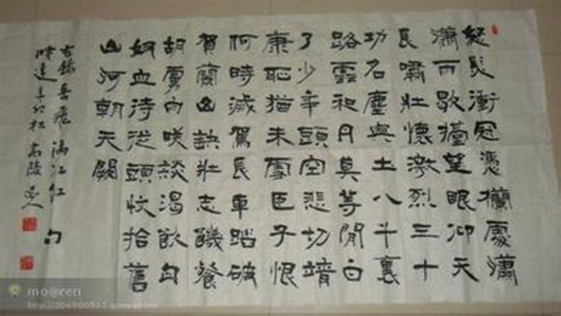 怒髮衝冠憑欄處瀟
瀟雨歇擡望眼仰天
長嘯壯懷激烈三十
功名塵與土八千裏
路雲和月莫等閒白
了少年頭空悲切靖
康恥猶未雪臣子恨
何時滅駕長車踏破
賀蘭山缺壯志饑餐
胡虜肉咲談渴飲匈
奴血待從頭收拾舊
山河朝天闕
右錄岳飛滿江红句
時逢辛卯秋高陵
mo@ren